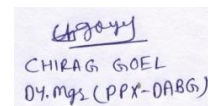 CHIRAG GOEL
Dy. Mgr (PPX-DABG)